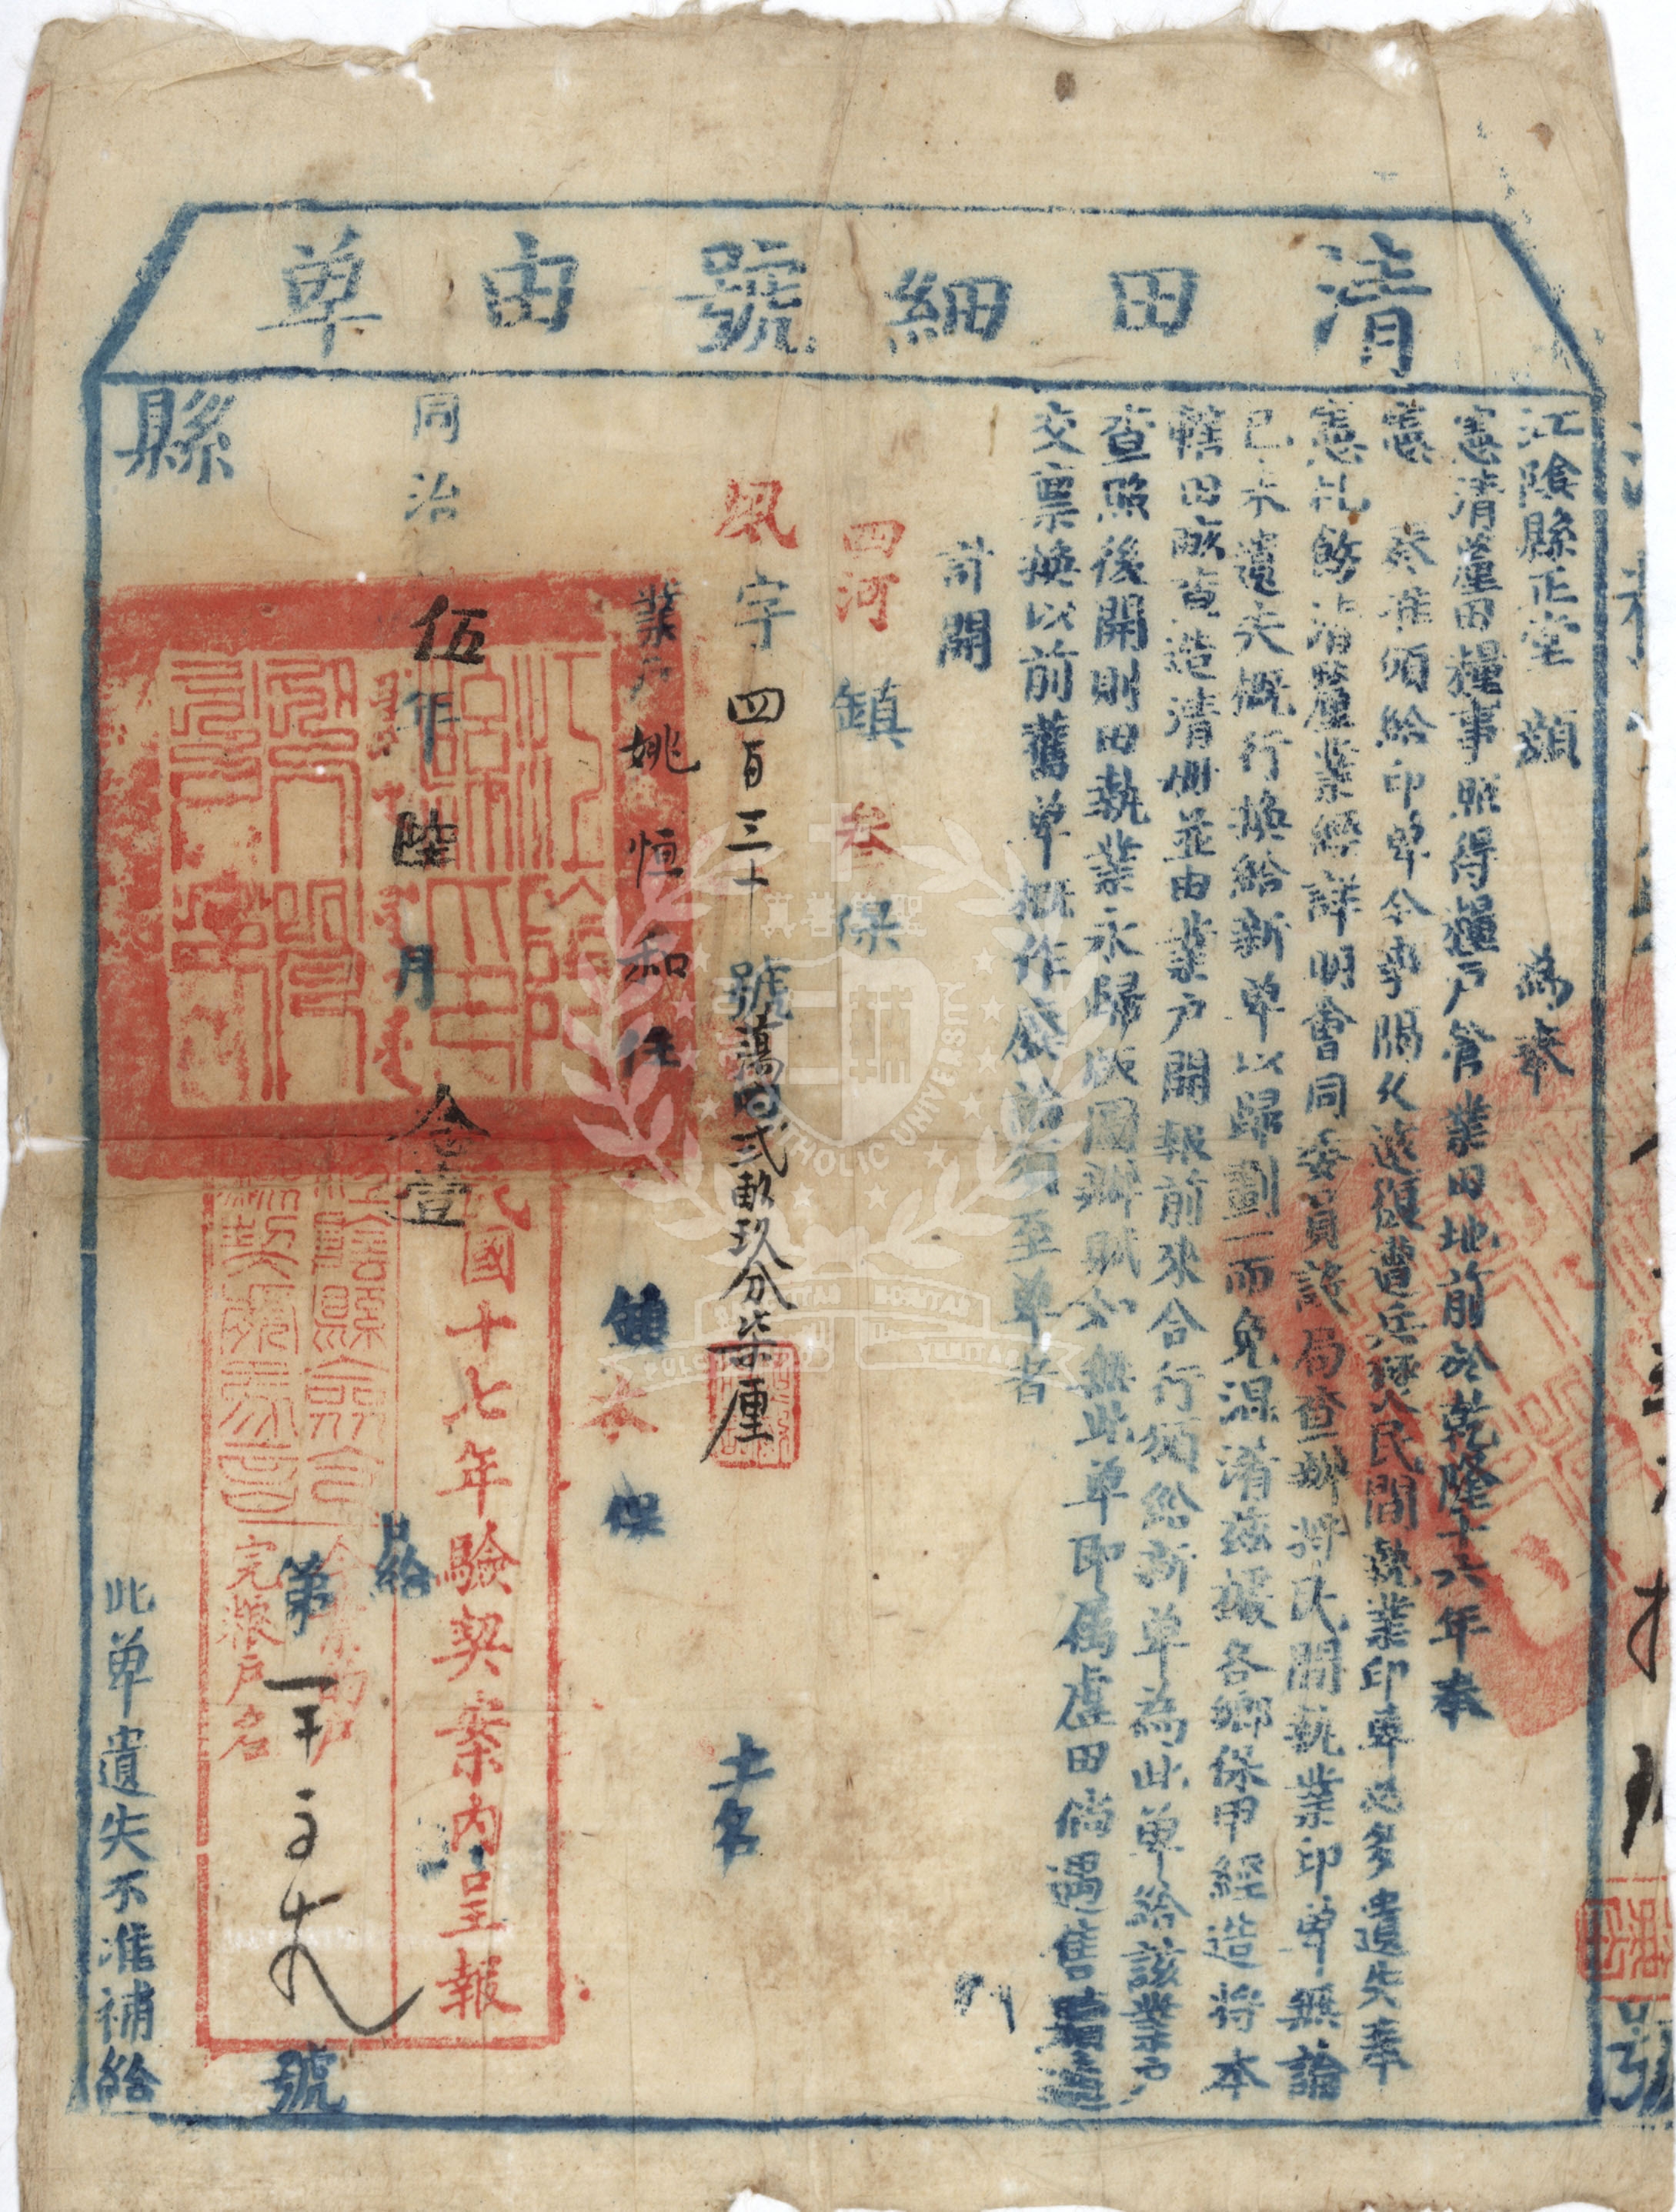 清田細號由單
江陰縣正堂 顏 為奉
憲清釐田糧事照得糧戶管業田地前於乾隆十六年奉
憲 奏准頒給印單今事隔久遠復遭兵燹民間執業印單
憲札飭清釐業經詳明會同委員設局查辦將民間執業印單無論
已未遺失概行換給新單以歸劃一而免混淆茲據各鄉保甲經造將本
轄田畝查造清冊並由業戶開報前來合行頒給新單為此單給該業戶
查照後開則田執業永歸版圖辦賦如無此單即屬虛田倘遇售
交票換以前舊單概作廢 至單者
計開
四河 鎮 叁 保
夙字四百三十號 弍畝玖分柒厘 土名
業戶姚恒和
鎮 保
民國十七年驗契案內呈報
同治伍年陸月 日給
完糧戶名
第 號
縣
此單遺失不准補給
號
聖美善真
CATHOLIC UNIVERSITY